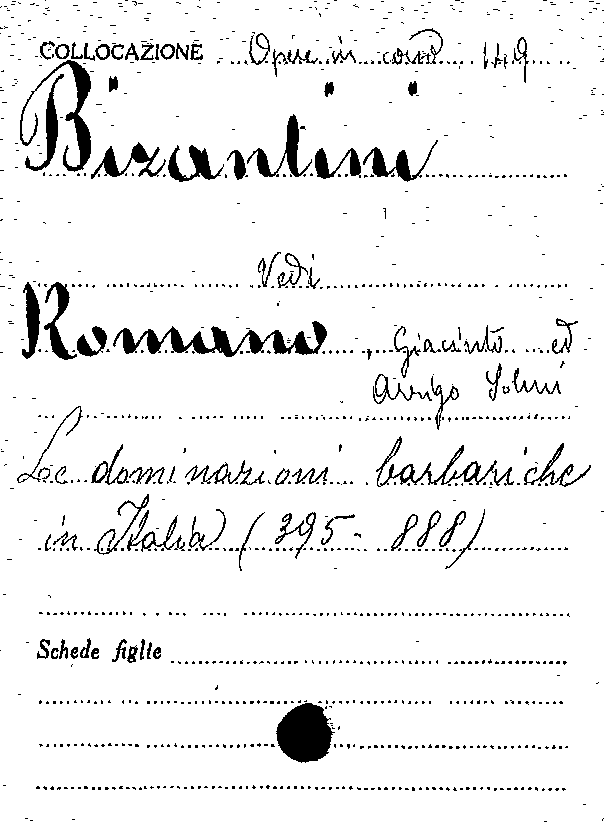 COLLOCAZIONE Opere in cons 149
Bizantini
Vedi
Romano, Giacinto ed
Arrigo Solmi
Le dominazioni barbariche
in Italia (395-888)
Schede figlie